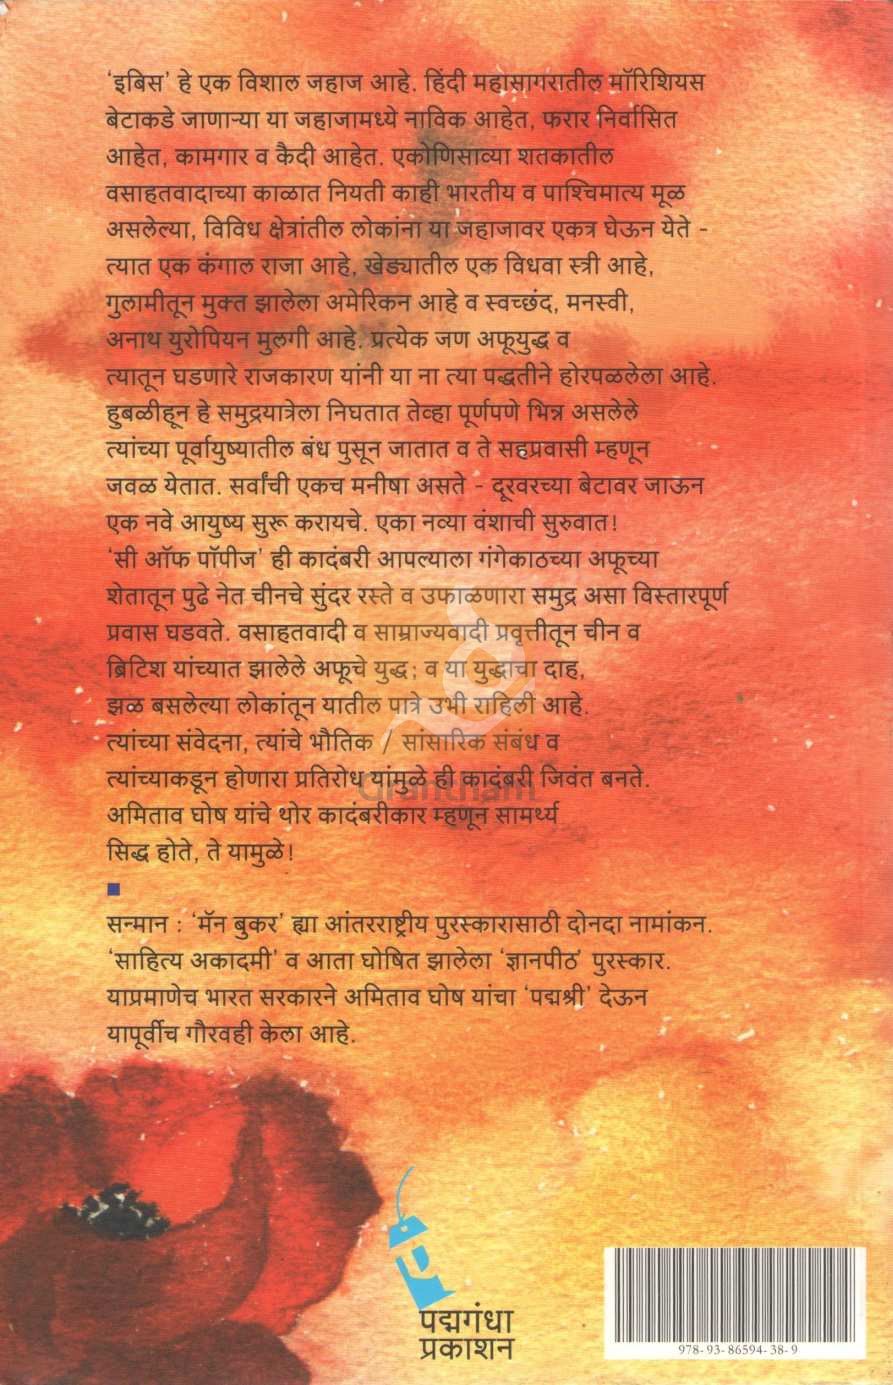 ‘इबिस’ हे एक विशाल जहाज आहे. हिंदी महासागरातील मॉरिशियस
बेटाकडे जाणाऱ्या या जहाजामध्ये नाविक आहेत, फरार निर्वासित
आहेत, कामगार व कैदी आहेत. एकोणिसाव्या शतकातील
वसाहतवादाच्या काळात नियती काही भारतीय व पाश्चिमात्य मूळ
असलेल्या, विविध क्षेत्रांतील लोकांना या जहाजावर एकत्र घेऊन येते -
त्यात एक कंगाल राजा आहे, खेड्यातील एक विधवा स्त्री आहे,
गुलामीतून मुक्त झालेला अमेरिकन आहे व स्वच्छंद, मनस्वी,
अनाथ युरोपियन मुलगी आहे. प्रत्येक जण अफूयुद्ध व
त्यातून घडणारे राजकारण यांनी या ना त्या पद्धतीने होरपळलेला आहे.
हुबळीहून हे समुद्रयात्रेला निघतात तेव्हा पूर्णपणे भिन्न असलेले
त्यांच्या पूर्वायुष्यातील बंध पुसून जातात व ते सहप्रवासी म्हणून
जवळ येतात. सर्वांची एकच मनीषा असते - दूरवरच्या बेटावर जाऊन
एक नवे आयुष्य सुरू करायचे. एका नव्या वंशाची सुरुवात!
‘सी ऑफ पॉपीज’ ही कादंबरी आपल्याला गंगेकाठच्या अफूच्या
शेतातून पुढे नेत चीनचे सुंदर रस्ते व उफाळणारा समुद्र असा विस्तारपूर्ण
प्रवास घडवते. वसाहतवादी व साम्राज्यवादी प्रवृत्तीतून चीन व
ब्रिटिश यांच्यात झालेले अफूचे युद्ध; व या युद्धाचा दाह,
झळ बसलेल्या लोकांतून यातील पात्रे उभी राहिली आहे.
त्यांच्या संवेदना, त्यांचे भौतिक / सांसारिक संबंध व
त्यांच्याकडून होणारा प्रतिरोध यांमुळे ही कादंबरी जिवंत बनते.
Grantham
अमिताव घोष यांचे थोर कादंबरीकार म्हणून सामर्थ्य
सिद्ध होते, ते यामुळे!
सन्मान : ‘मॅन बुकर’ ह्या आंतरराष्ट्रीय पुरस्कारासाठी दोनदा नामांकन.
‘साहित्य अकादमी’ व आता घोषित झालेला ‘ज्ञानपीठ’ पुरस्कार.
याप्रमाणेच भारत सरकारने अमिताव घोष यांचा ‘पद्मश्री’ देऊन
यापूर्वीच गौरवही केला आहे.
पद्मगंधा
प्रकाशन
978-93-86594-38-9